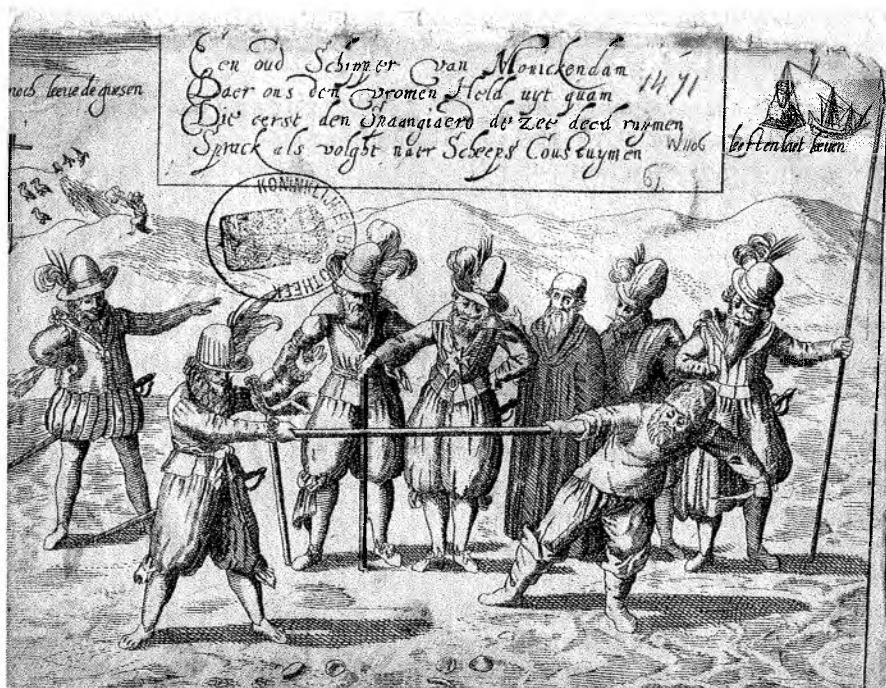 Een oud Schipper van Monickendam
Daer ons den vromen Held uyt quam
Die eerst den Spaangiaerd de Zee deed ruymen
Sprack als volght naer Scheeps Coustuymen
1471
W1106
61
noch leeue de geusen
leeft en laet leeuen
KONINKLIJKE BIBLIOTHEEK